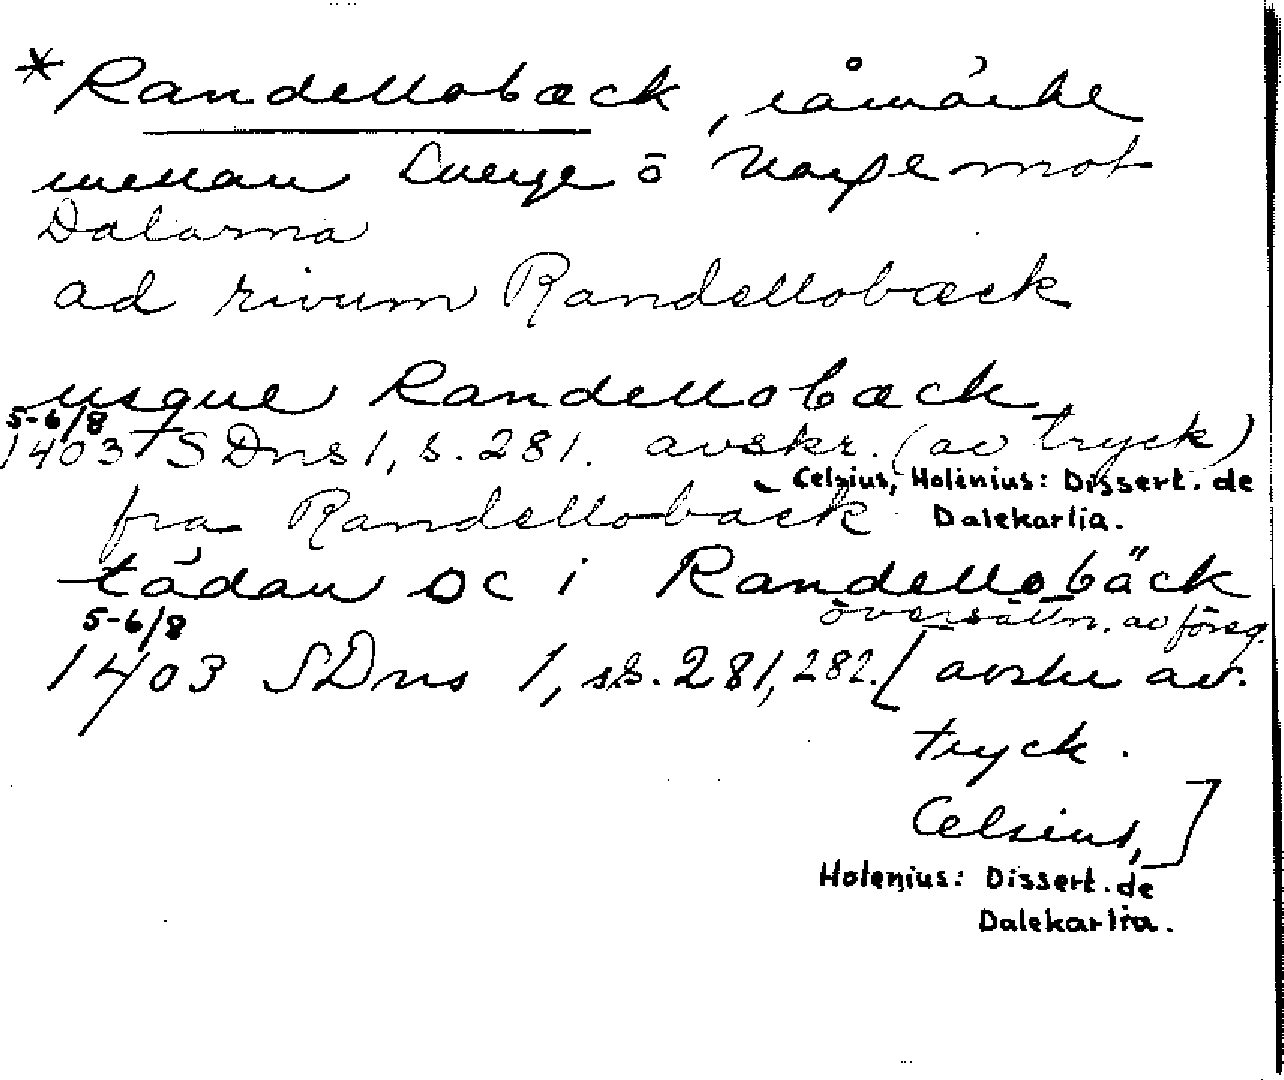 * Randellobæck, råmärke
mellan Sverge o Norge mot
Dalarna
ad rivum Randellobæck
usque Randellobæck
5-6/8
1403 SDns 1, s. 281. avskr. (av tryck)
Celsius, Holenius: Dissert. de
Dalekarlia.
fra Randellobäck
tådan oc i Randellobäck
översättn. av föreg.
5-6/8
1403 SDns 1, ss. 281, 282. [avskr av.
tryck.
Celsius,]
Holenius: Dissert. de
Dalekarlia.